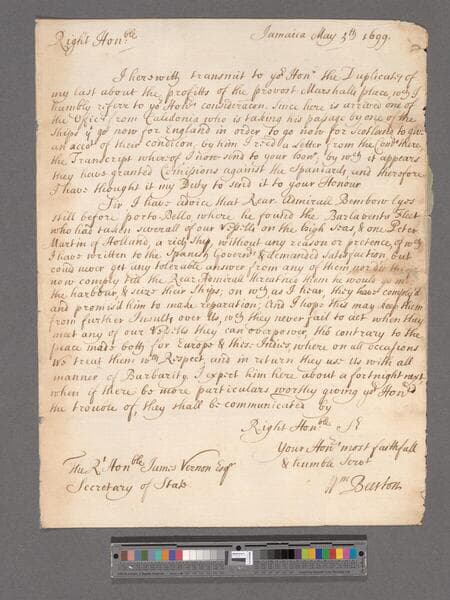 Right Hon:ble
Jamaica May 5th 1699
I herewith transmit to yor Honr the Duplicates of
my last about the profitts of the provost Marshalls place, wch I
humbly referr to yor Honrs consideration. Since here is arrived one of
the from Caledonia who is taking his passage by one of the
Ships yt go now for England in order to go now for Scotland to give
an accot of their condicon, by him I recd a letter from the there,
the Transcript whereof I now send to your honr, by wch it appears
they have granted Comissions against the Spaniards, and therefore
I have thought it my Duty to send it to your Honour
Sir I have advice that Rear Admirall Bembow Lyes
still before porto Bello, where he found the Barlavento Fleet
who had taken severall of our Vessells on the high Seas, & one Peter
Martin of Holland, a rich Ship, without any reason or pretence, of wch
I have written to the Spanish Governrs & demanded Satisfaction but
could never get any tolerable answer from any of them nor did they
now comply till the Rear Admirall threatned them he would go into
the harbour & seize their Ships, on wch as I hear, they have complyed
and promis'd him to make reparation, And I hope this may keep them
from further Insults over Us, wch they never fail to act when they
met any of our Vessells they can overpower, tho contrary to the
peace made both for Europe & these Indies, where on all occasions
We treat them wth Respect, and in return they use Us with all
manner of Barbarity. I expect him here about a fortnight next
when if there be more particulars worthy giving yor Honr
the trouble of, they shall be communicated by
Right Honble Sr
Your Honrs most faithfull
& humble Servt
Wm Beeston
The Rt Honble James Vernon Esqr
Secretary of State